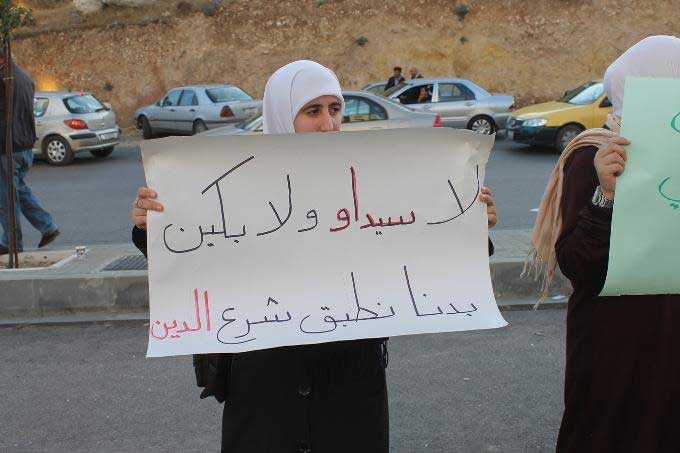 لا سيداو ولا بكين
بدنا نطبق شرع الدين